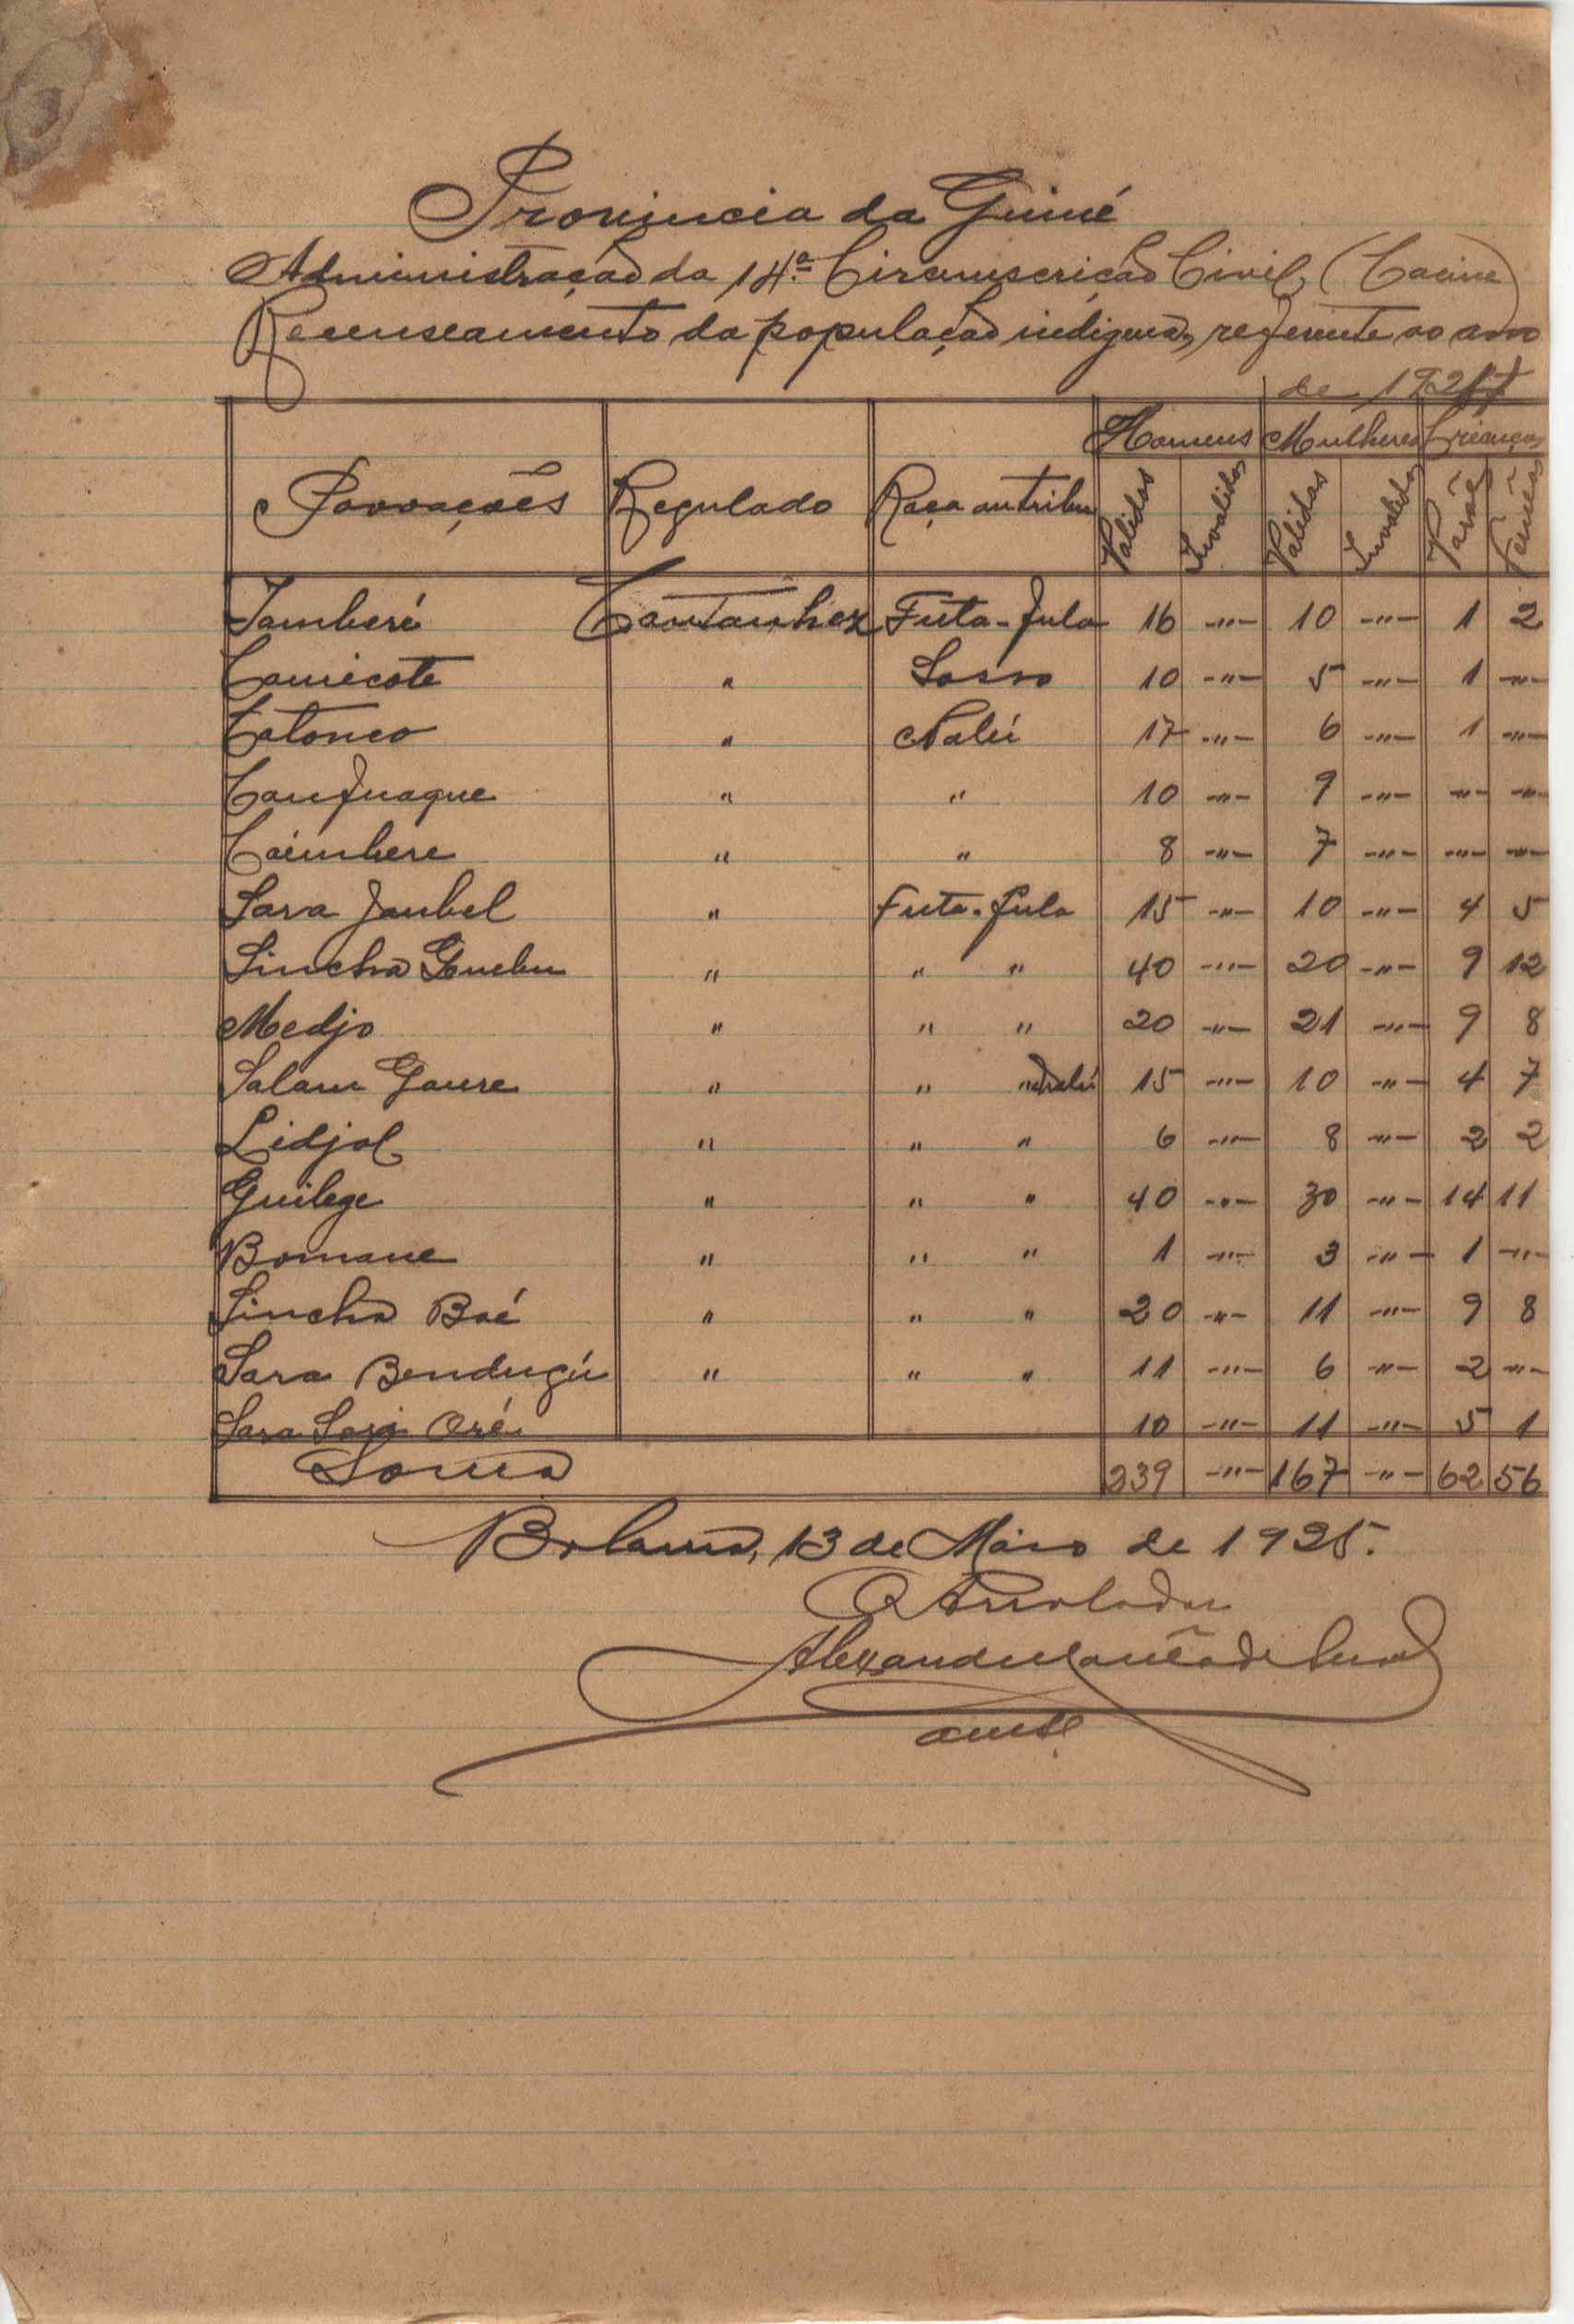 Provincia da Guiné
Administração da 14.ª Circunscrição Civil, (Cacine)
Recenseamento da população indigena, referente ao ano
de 192
Homens Mulheres Crianças
Povoações Regulado Raça ou tribu Validos Invalidos Validas Invalidas Varões Femeas
Jamberé Cantanhez Futa-Fula 16 -"- 10 -"- 1 2
Camecote " Sosso 10 -"- 5 -"- 1 -"-
Catonco " Nalú 17 -"- 6 -"- 1 -"-
Canfuaque " " 10 -"- 9 -"- -"- -"-
Caimbere " " 8 -"- 7 -"- -"- -"-
Sara Jaubel " Futa-Fula 15 -"- 10 -"- 4 5
Sincha " " " 40 -"- 20 -"- 9 12
Medjo " " " 20 -"- 21 -"- 9 8
Salam Gaure " " " Nalú 15 -"- 10 -"- 4 7
Lidjol " " " 6 -"- 8 -"- 2 2
Guilege " " " 40 -"- 30 -"- 14 11
Bomane " " " 1 -"- 3 -"- 1 -"-
Sincha Boé " " " 20 -"- 11 -"- 9 8
Sara Bendugú " " " 11 -"- 6 -"- 2 -"-
Sara 10 -"- 11 -"- 5 1
Soma 239 -"- 167 -"- 62 56
Bolama, 13 de Maio de 1925.
O Arrolador
Alexandre